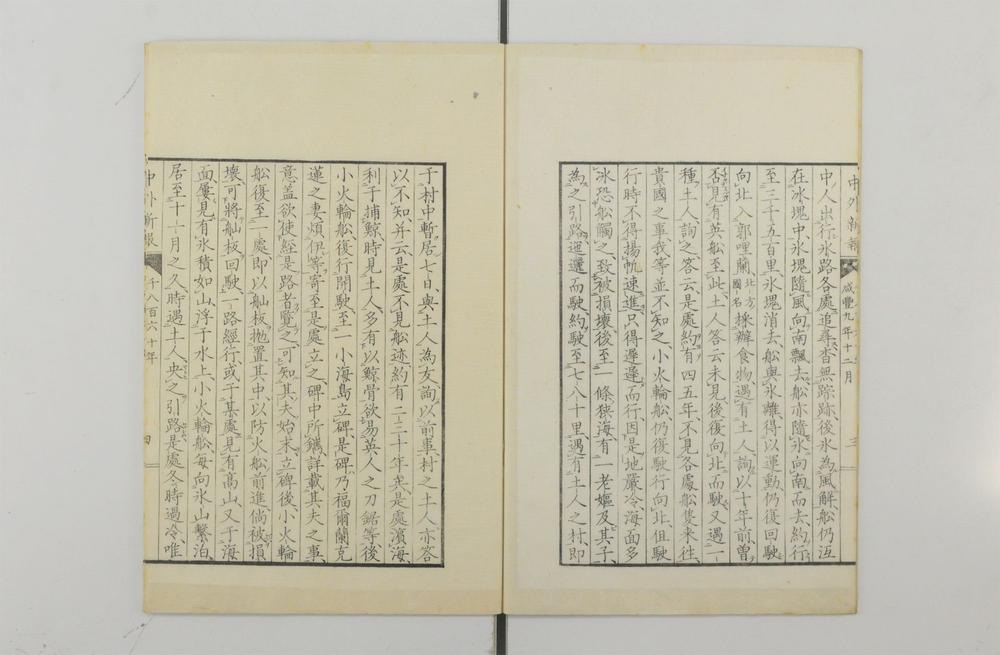 中外新報 咸豐九年十二月 三
中人出行氷路各處追尋杳無踪跡後氷為風解船仍沍
在氷塊中氷塊隨風向南飄去船亦隨氷向南而去約行
至三千五百里氷塊消去船與氷離得以運動仍復回駛
向北入郭哩蘭北方國名採辦食物遇有土人詢以十年前曾
否見有英船至此土人答云未見後復向北而駛又遇一
種土人詢之答云是處約有四五年不見各處船隻来往
貴國之事我等並不知之小火輪船仍復駛行向北但駛
行時不得揚帆速進只得遲遲而行因是地嚴冷海面多
氷恐船觸之致被損壞後至一條狹海有一老嫗及其子
為之引路迤邐而駛約駛至七八十里遇有土人之村即
于村中暫居七日與土人為友詢以前事村之土人亦答
以不知并云是處不見船迹約有二三十年矣是處濱海
利于捕鯨時見土人多有以鯨骨欲易英人之刀鋸等後
小火輪船復行開駛至一小海島立碑是碑乃福爾蘭克
蓮之妻煩伊等寄至是處立之碑中所鐫詳載其夫之事
意盖欲使經是路者覽之可知其夫始末立碑後小火輪
船復至一處即以舢板拋置其中以防火船前進倘被損
壞可將舢板回駛一路經行或于某處見有高山又于海
面屢見有氷積如山浮于水上小火輪船每向氷山繫泊
居至十一月之久時遇土人央之引路是處冬時過冷唯
中外新報 千八百六十年 四